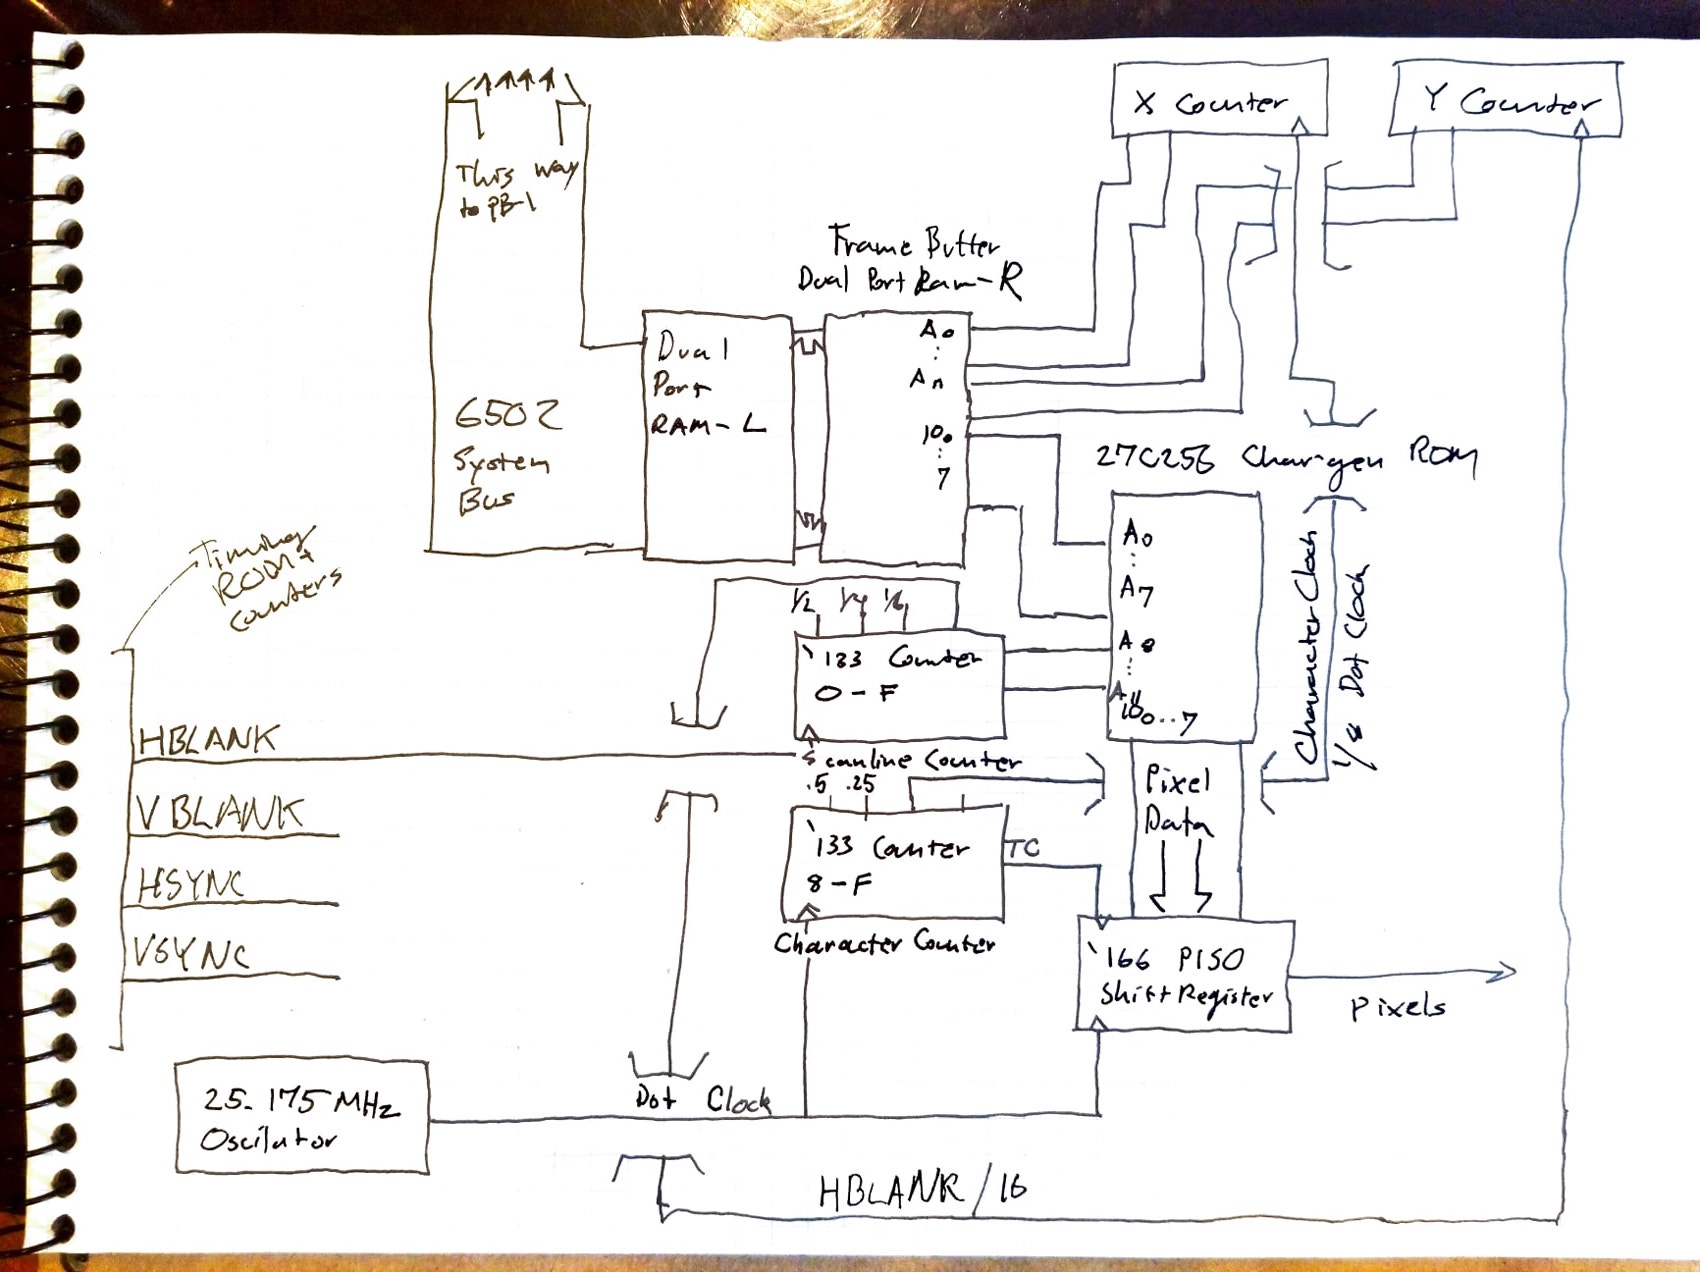 This way
to PB-1
X Counter
Y Counter
Frame Buffer
Dual Port Ram-R
Dual
Port
RAM-L
A0
:
An
IO0
:
7
6502
System
Bus
27C256 Char-gen ROM
A0
:
A7
A8
:
A11
IO0..7
Timing
ROM+
Counters
1/2 1/4 1/8
'133 Counter
0-F
Scanline Counter
HBLANK
VBLANK
HSYNC
VSYNC
.5 .25
'133 Counter
8-F
TC
Character Counter
Character Clock
1/8 Dot Clock
Pixel
Data
'166 PISO
Shift Register
Pixels
25.175MHz
Oscilator
Dot Clock
HBLANK/16